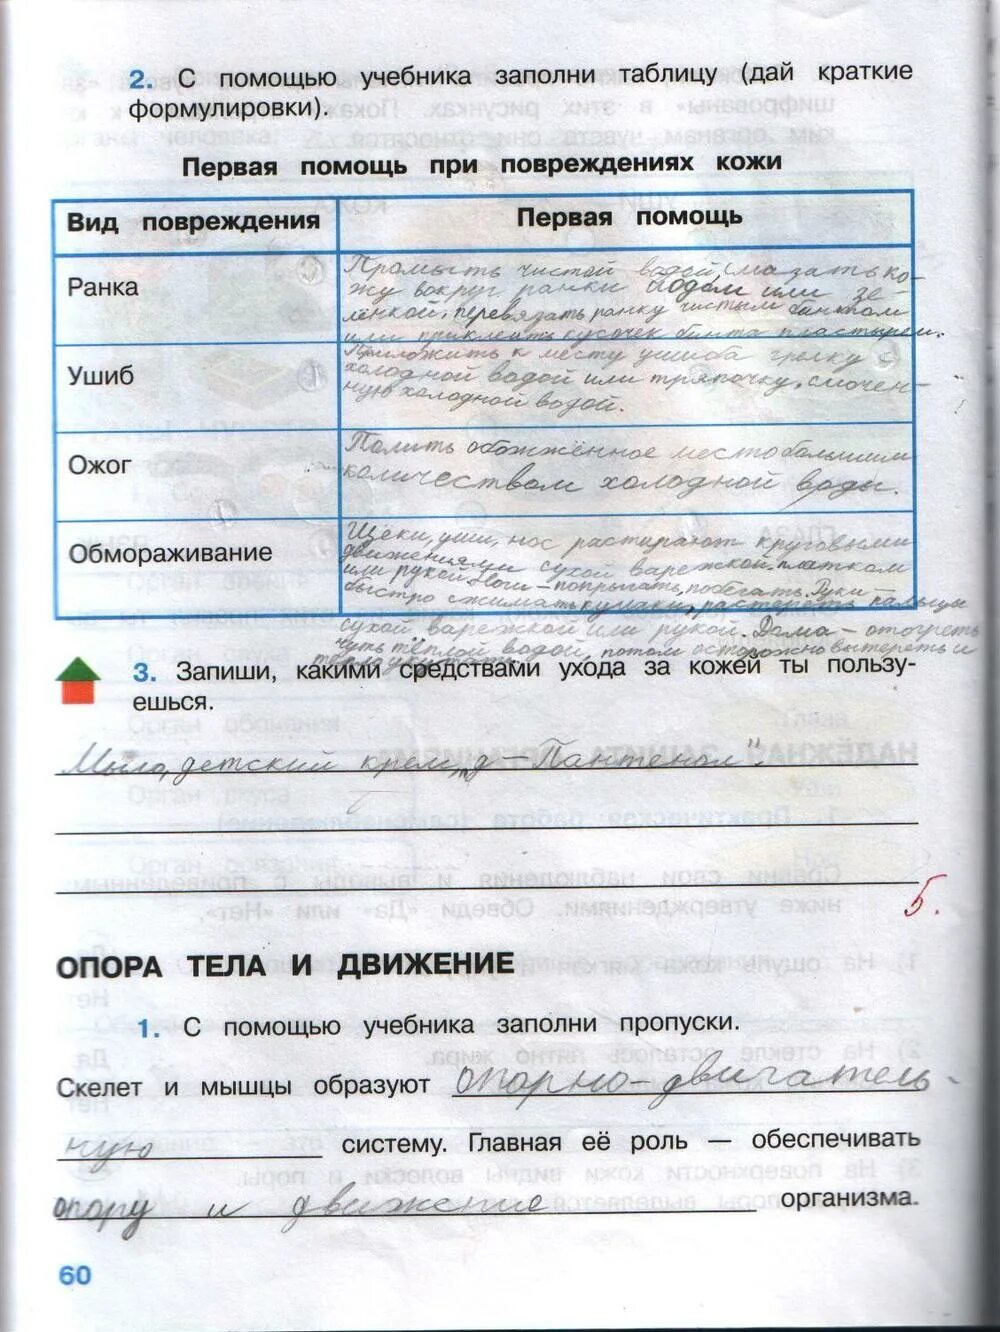 2. С помощью учебника заполни таблицу (дай краткие
формулировки).
Первая помощь при повреждениях кожи
Вид повреждения
Первая помощь
Ранка
Промыть чистой водой, смазать ко-
жу вокруг ранки йодом или зе-
лёнкой, перевязать ранку чистым бинтом
или приклеить кусочек бинта пластырем.
Ушиб
Приложить к месту ушиба грелку с
холодной водой или тряпочку, смочен-
ную холодной водой.
Ожог
Полить обожжённое место большим
количеством холодной воды.
Обмораживание
Щёки, уши, нос растирают круговыми
движениями сухой варежкой, платком
или рукой. Ноги – попрыгать, побегать. Руки –
быстро сжимать кулаки, растереть пальцы
сухой варежкой или рукой. Дома – отогреть
чуть тёплой водой, потом осторожно вытереть и
3. Запиши, какими средствами ухода за кожей ты пользу-
ешься.
Мыло, детский крем, "Д – Пантенол".
5.
ОПОРА ТЕЛА И ДВИЖЕНИЕ
1. С помощью учебника заполни пропуски.
Скелет и мышцы образуют опорно-двигатель-
ную систему. Главная её роль — обеспечивать
опору и движение организма.
60